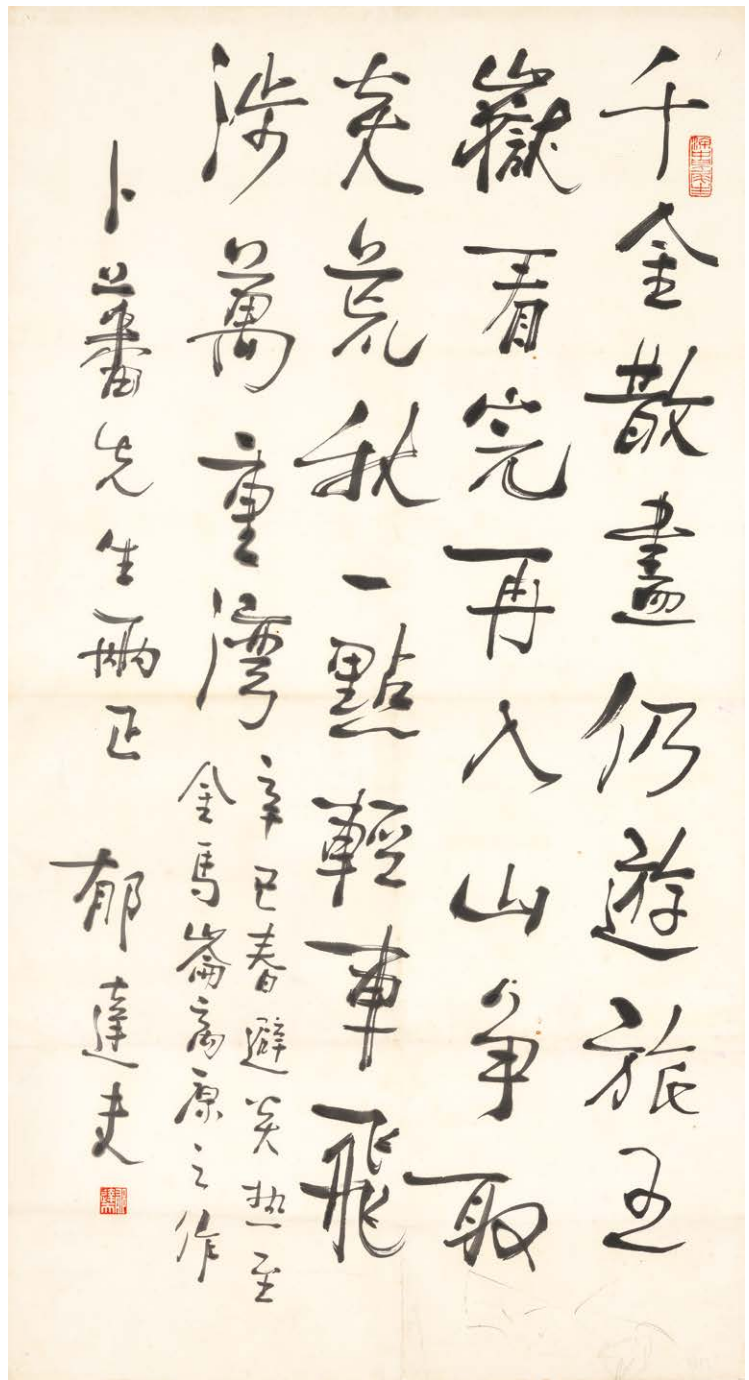 千金散盡仍遊旅五
嶽看完再入山争取
炎荒秋一點輕車飛
涉萬重灣
辛巳春避炎热至
金馬崙高原之作
卜蕃先生正 郁達夫